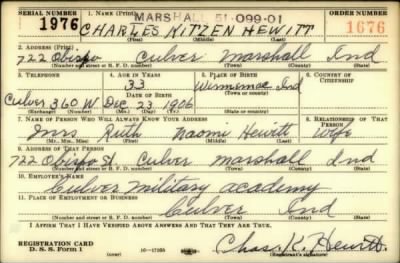 SERIAL NUMBER 1. NAME (Print) MARSHALL 51-099-01 ORDER NUMBER
1976 CHARLES KITZEN HEWITT 1676
(First) (Middle) (Last)
2. ADDRESS (Print)
722 Obispo Culver Marshall Ind
(Number and street or R. F. D. number) (Town) (County) (State)
3. TELEPHONE 4. AGE IN YEARS 5. PLACE OF BIRTH 6. COUNTRY OF CITIZENSHIP
33 Winimac Ind
DATE OF BIRTH (Town or county)
Culver 360 W Dec 23 1906
(Exchange) (Number) (Mo.) (Day) (Yr.) (State or country)
7. NAME OF PERSON WHO WILL ALWAYS KNOW YOUR ADDRESS 8. RELATIONSHIP OF THAT PERSON
Mrs Ruth Naomi Hewitt Wife
(Mr., Mrs., Miss) (First) (Middle) (Last)
9. ADDRESS OF THAT PERSON
722 Obispo St. Culver Marshall Ind
(Number and street or R. F. D. number) (Town) (County) (State)
10. EMPLOYER'S NAME
Culver Military Academy
11. PLACE OF EMPLOYMENT OR BUSINESS
Culver Ind
(Number and street or R. F. D. number) (Town) (County) (State)
I AFFIRM THAT I HAVE VERIFIED ABOVE ANSWERS AND THAT THEY ARE TRUE.
REGISTRATION CARD
D. S. S. Form 1 (over) 16-17105 Chas. K. Hewitt
(Registrant's signature)